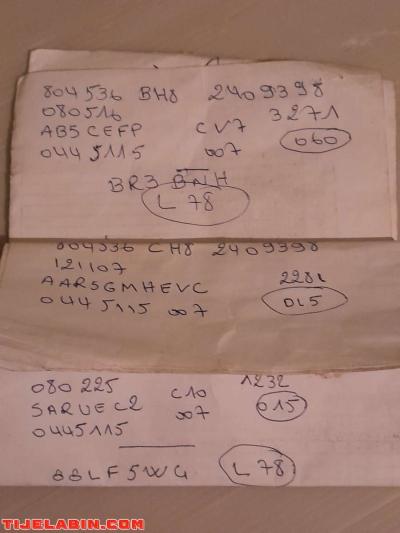 804536 BH8 2409398
080516 3271
AB5CEFP CV7
0445115 007 060
BR3 BNH
L 78
804536 CH8 2409398
121107
AAR5GMHEVC 228L
0445115 007 015
080225 C10 1232
5ARUEC2 007 015
0445115
88LF5WG L 78
TIJELABIN.COM